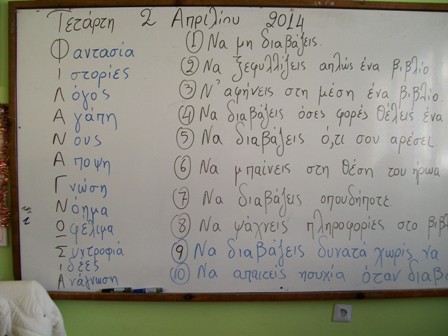 Τετάρτη 2 Απριλίου 2014
Φαντασία
Ιστορίες
Λόγος
Αγάπη
Νους
Άποψη
Γνώση
Νόημα
Οφέλιμα
Συντροφιά
Ιδέες
Ανάγνωση
① Να μη διαβάζεις.
② Να ξεφυλλίζεις απλώς ένα βιβλίο
③ Ν' αφήνεις στη μέση ένα βιβλίο
④ Να διαβάζεις όσες φορές θέλεις ένα
⑤ Να διαβάζεις ό,τι σου αρέσει
⑥ Να μπαίνεις στη θέση του ήρωα
⑦ Να διαβάζεις οπουδήποτε
⑧ Να ψάχνεις πληροφορίες στο
⑨ Να διαβάζεις δυνατά χωρίς να
⑩ Να απαιτείς ησυχία όταν